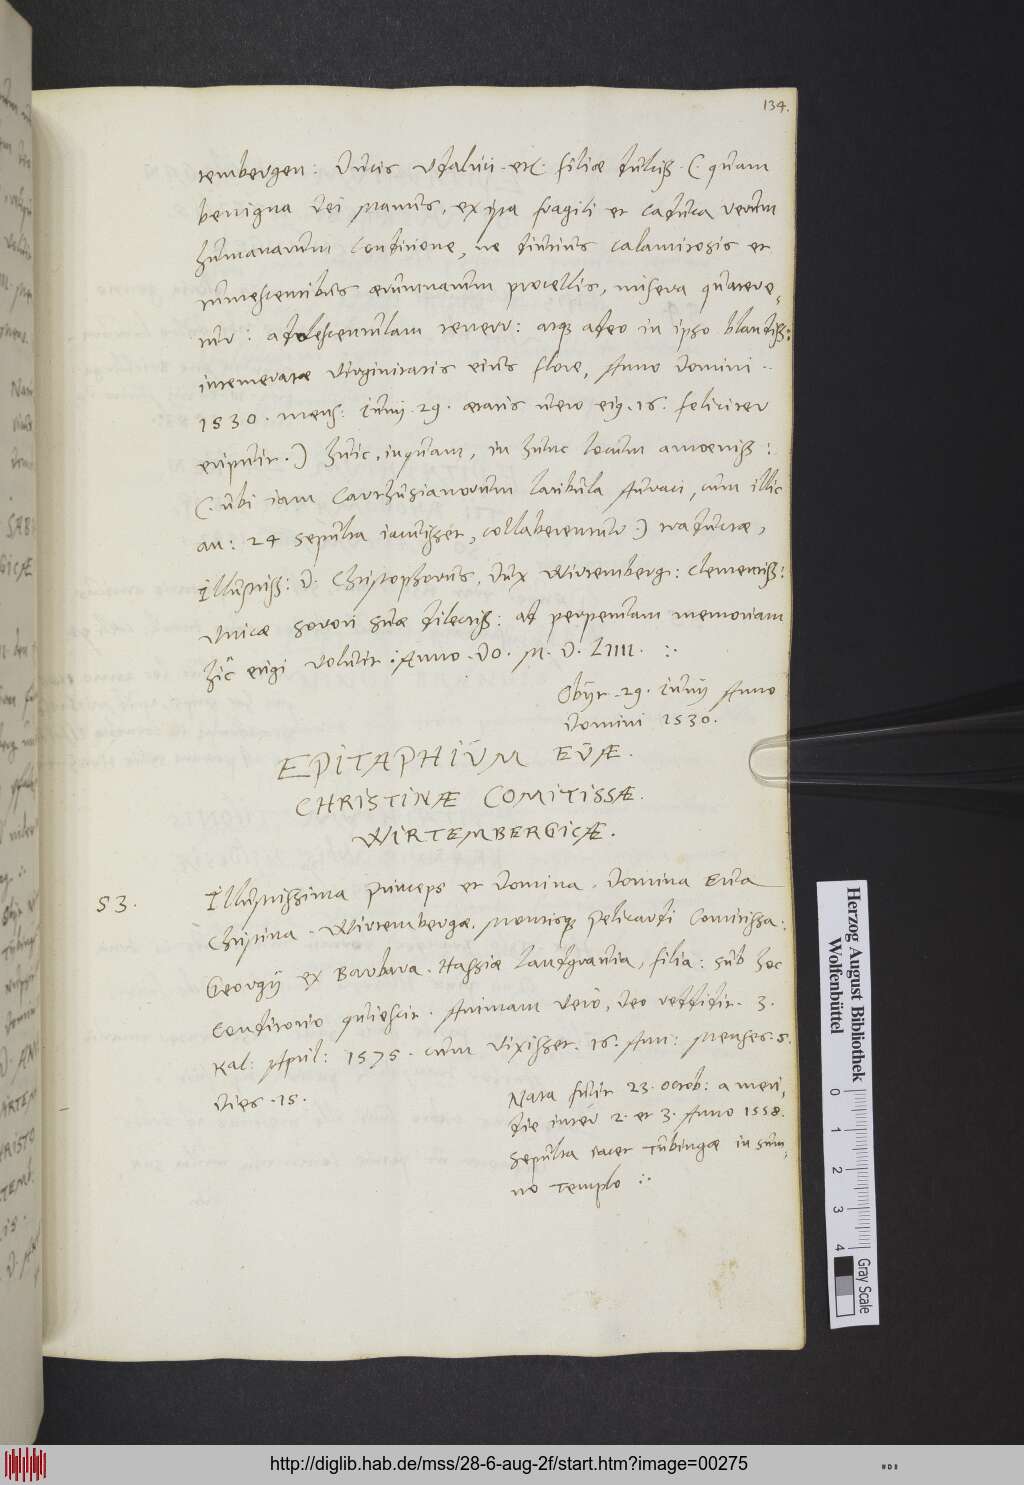 134.
tembergen: Ducis Udalrici. etc. filiæ dulciß. (. quam
benigna Dei manus, ex ipsa fragili et caduca rerum
humanarum conditione, ne diutius calamitosis et
tumescentibus ærumnarum procellis, misera quatere=
tur: adolescentulam tener: atq; adeo in ipso blandiß:
intemeratæ virginitatis eius flore, Anno Domini.
1530. mens: Iunij. 29. ætatis vero eiq. 16. feliciter
eripuit.) huic, inquam, in hunc locum amoeniß:
(. ubi iam Carthusianorum latibula Auraci, cum illic
an: 24 sepulta iacuisset, collaberentur) traductæ,
Illustriß: D. Christophorus, Dux Wirtemberg: clementiß:
Unicæ sorori suæ dilectiß: ad perpetuam memoriam
hîc erigi voluit: Anno. Do. M. D. LIIII. :.
Obijt. 29. Iunij Anno
Domini 1530.
EPITAPHIŬM EŬÆ.
CHRISTINÆ COMITISSÆ.
WIRTEMBERGICÆ.
53.
Illustrissima Princeps et Domina. Domina Eua
Christina. Wirtembergæ. Montisq; Pelicardi Comitissa:
Georgij ex Barbara. Hassiæ Landgrauia, filia: sub hoc
Conditorio quiescit. Animam verò, Deo reddidit. 3.
Kal: April: 1575. cum vixisset. 16. Ann: Menses. 5.
Dies. 15.
Nata fuit 23. Octob: a meri,
die inter 2. et 3. Anno 1558.
Sepulta iacet Tubingæ in sum,
no templo :.
Herzog August Bibliothek
Wolfenbüttel
0 1 2 3 4
Gray Scale
http://diglib.hab.de/mss/28-6-aug-2f/start.htm?image=00275